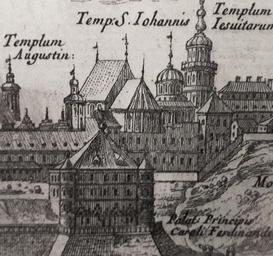 Temp: S. Iohannis
Templum
Iesuitarum
Templum
Augustin:
Mo
Palat: Principis
Caroli Ferdinandi